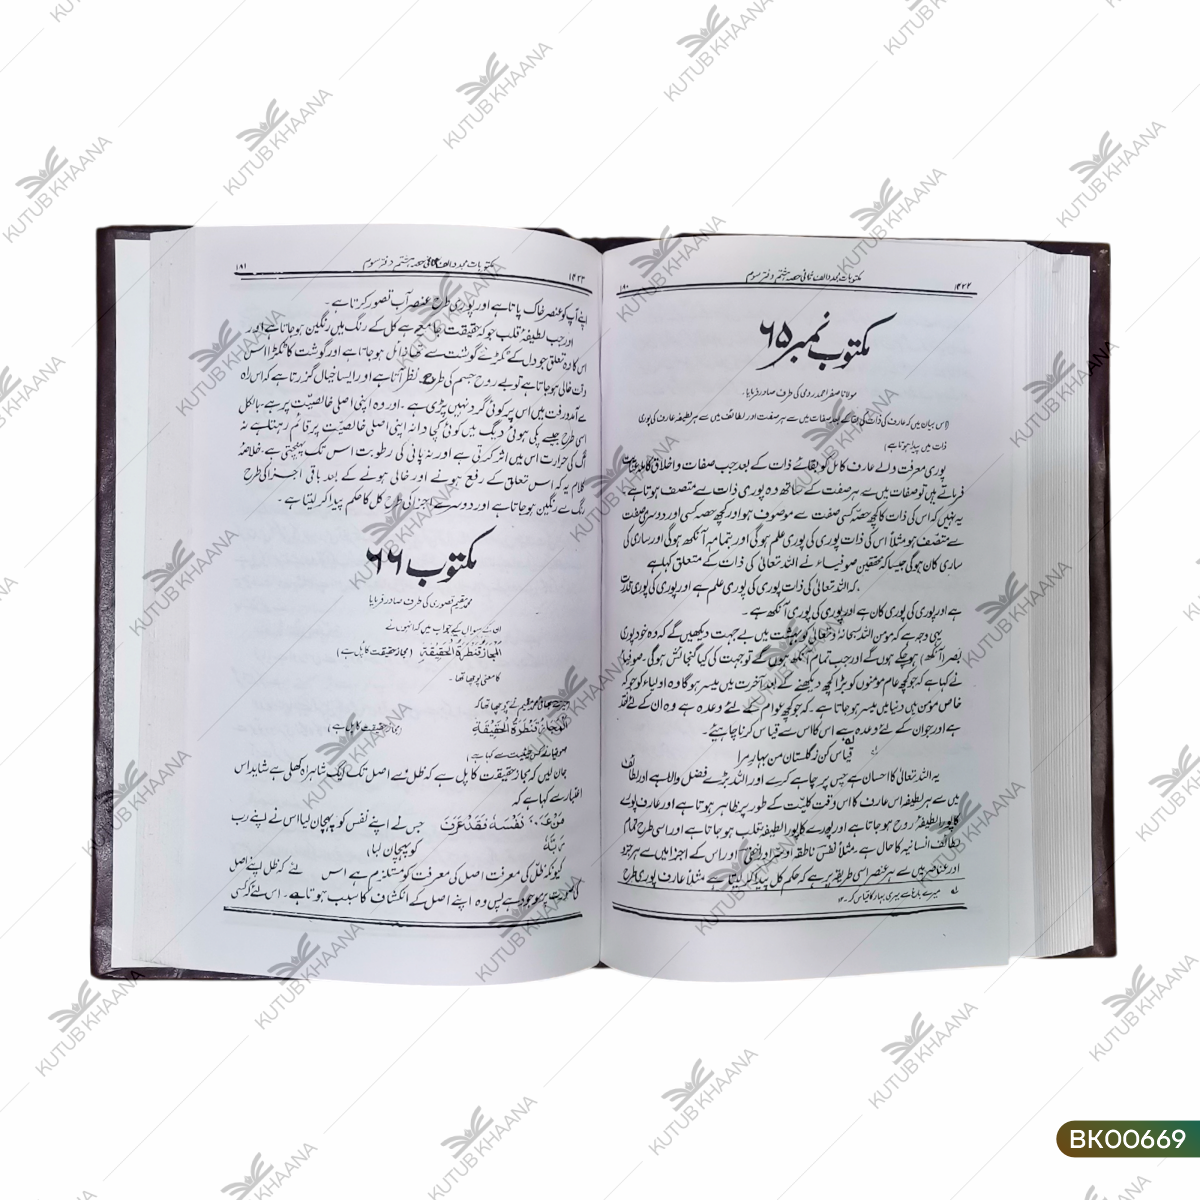 ۱۴۲۲ مکتوبات مجدد الف ثانی حصہ ہشتم دفتر سوم ۱۹۰
مکتوب نمبر ۶۵
مولانا صفر احمد رومی کی طرف صادر فرمایا۔
(اس بیان میں کہ عارف کی ذات کی بقا کے بعد صفات میں سے ہر صفت اور لطائف میں سے ہر لطیفہ عارف کی پوری
ذات میں پیدا ہوتا ہے)
پوری معرفت والے عارف کامل کو بقائے ذات کے بعد جب صفات و اخلاق کاملہ عنایت
فرماتے ہیں تو صفات میں سے ہر صفت کے ساتھ وہ پوری ذات سے متصف ہوتا ہے۔
یہ نہیں کہ اس کی ذات کا کچھ حصہ کسی صفت سے موصوف ہو اور کچھ حصہ کسی اور دوسری صفت
سے متصف ہو مثلاً اس کی ذات پوری کی پوری علم ہوگی اور بتمامہ آنکھ ہوگی اور ساری کی
ساری کان ہوگی جیسا کہ محققین صوفیاء نے اللہ تعالیٰ کی ذات کے متعلق کہا ہے
کہ اللہ تعالیٰ کی ذات پوری کی پوری علم ہے اور پوری کی پوری قدرت
ہے اور پوری کی پوری کان ہے اور پوری کی پوری آنکھ ہے۔
یہی وجہ ہے کہ مؤمن اللہ سبحانہٗ وتعالیٰ کو بہشت میں بے جہت دیکھیں گے کہ وہ خود پوری
بصر (آنکھ) ہو چکے ہوں گے اور جب تمام آنکھ ہوں گے تو جہت کی کیا گنجائش ہوگی۔ صوفیاء
نے کہا ہے کہ جو کچھ عام مؤمنوں کو بڑا کچھ دیکھنے کے بعد آخرت میں میسر ہوگا وہ اولیاء کو جو کہ
خاص مؤمن ہیں دنیا میں میسر ہو جاتا ہے۔ کہ جو کچھ عوام کے لئے وعدہ ہے وہ ان کے لئے نقد
ہے اور جو ان کے لئے وعدہ ہے اس کا اس سے قیاس کرنا چاہیئے۔
قیاس کن ز گلستان من بہار مرا
یہ اللہ تعالیٰ کا احسان ہے جس پر چاہے کرے اور اللہ بڑے فضل والا ہے اور لطائف
میں سے ہر لطیفہ اس عارف کا اس وقت کلیّت کے طور پر ظاہر ہوتا ہے اور عارف پورے
کا پورا لطیفۂ روح ہو جاتا ہے اور پورے کا پورا لطیفۂ قلب ہو جاتا ہے اور اسی طرح تمام
لطائف انسانیہ کا حال ہے۔ مثلاً نفس ناطقہ اور اور اس کے اجزا میں سے ہر جزو
اور عناصر میں سے ہر عنصر اسی طریقہ پر ہے کہ حکم کل پیدا کر لیتا ہے مثلاً عارف پوری طرح
میرے باغ سے میری بہار کا قیاس کر۔ ۱۲
۱۴۲۳ مکتوبات مجدد الف ثانی حصہ ہشتم دفتر سوم ۱۹۱
اپنے آپ کو عنصر خاک پاتا ہے اور پوری طرح عنصر آب تصور کرتا ہے۔
اور جب لطیفۂ قلب جو کہ حقیقت جامع ہے کل کے رنگ میں رنگین ہو جاتا ہے اور
اس کا وہ تعلق جو دل کے ٹکڑے گوشت سے تھا زائل ہو جاتا ہے اور گوشت کا ٹکڑا اس
ذات خالی ہو جاتا ہے تو بے روح جسم کی طرح نظر آتا ہے اور ایسا خیال گزرتا ہے کہ اس راہ
سے آمد و رفت میں اس پر کوئی گرد نہیں پڑی ہے۔ اور وہ اپنی اصلی خالصیت پر ہے۔ بالکل
اسی طرح جیسے پکی ہوئی دیگ میں کوئی کچا دانہ اپنی اصلی خالصیّت پر قائم رہتا ہے نہ
آگ کی حرارت اس میں اثر کرتی ہے اور نہ پانی کی رطوبت اس تک پہنچتی ہے۔ خلاصۂ
کلام یہ کہ اس تعلق کے رفع ہونے اور خالی ہونے کے بعد باقی اجزا کی طرح
رنگ سے رنگین ہو جاتا ہے اور دوسرے اجزا کی طرح کل کا حکم پیدا کر لیتا ہے۔
مکتوب ۶۶
محمد مقیم قصوری کی طرف صادر فرمایا
ان کے سوال کے جواب میں کہ انہوں نے
المجاز قنطرۃ الحقیقۃ (مجاز حقیقت کا پل ہے)
کا معنی پوچھا تھا۔
میرے بھائی محمد مقیم نے پوچھا تھا کہ
اَلْمَجَازُ قَنْطَرَۃُ الْحَقِیْقَۃِ (مجاز حقیقت کا پل ہے)
صوفیا نے کس حیثیت سے کہا ہے)
جان لیں کہ مجاز حقیقت کا پل ہے کہ ظل سے اصل تک ایک شاہراہ کھلی ہے شاید اس
اعتبار سے کہا ہے کہ
مَنْ عَرَفَ نَفْسَہٗ فَقَدْ عَرَفَ جس نے اپنے نفس کو پہچان لیا اس نے اپنے رب
رَبَّہٗ کو پہچان لیا،
کیونکہ ظلّ کی معرفت اصل کی معرفت کو مستلزم ہے اس لئے کہ ظل اپنے اصل
کی صورت پر موجود ہے پس وہ اپنے اصل کے انکشاف کا سبب ہوتا ہے۔ اس لئے کہ کسی
KUTUB KHAANA
BK00669